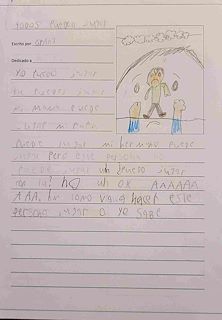 todos pueden jugar
Escrito por
Dedicado a
yo puedo jugar
tu puedes jugar
mi mama puede
jugar mi papa
puede jugar mi hermano puede
jugar pero ese persona no
puede jugar un juego jugar
no un ok AAAAAA
AAA como va a hacer este
persona jugar a yo sabe